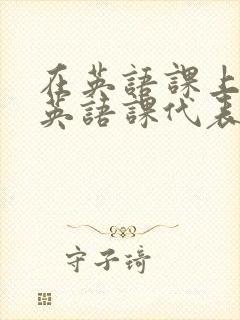 在英語課上
英語課代表
守子琦